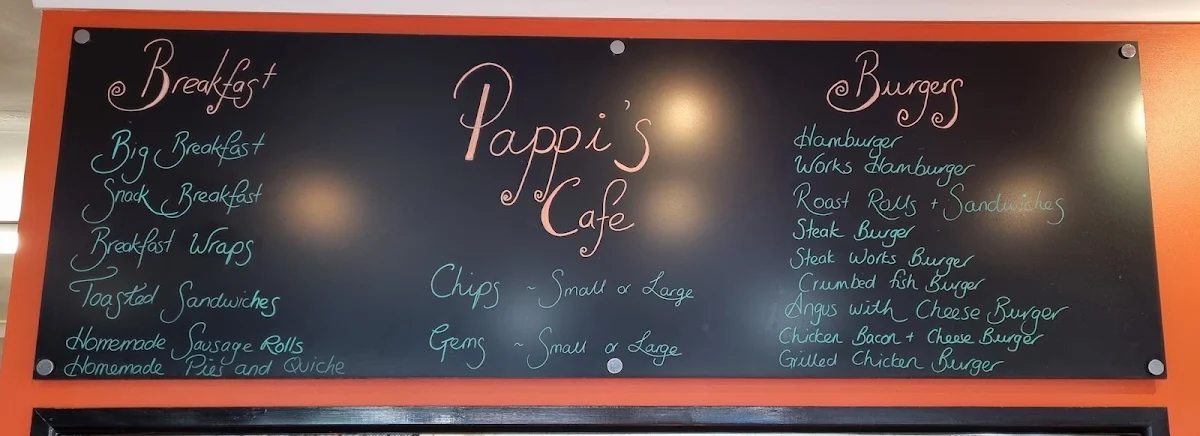 Breakfast
Big Breakfast
Snack Breakfast
Breakfast Wraps
Toasted Sandwiches
Homemade Sausage Rolls
Homemade Pie's and Quiche
Pappi's
Cafe
Chips ~ Small or Large
Gems ~ Small or Large
Burgers
Hamburger
Works Hamburger
Roast Rolls + Sandwiches
Steak Burger
Steak Works Burger
Crumbed fish Burger
Angus with Cheese Burger
Chicken Bacon + Cheese Burger
Grilled Chicken Burger